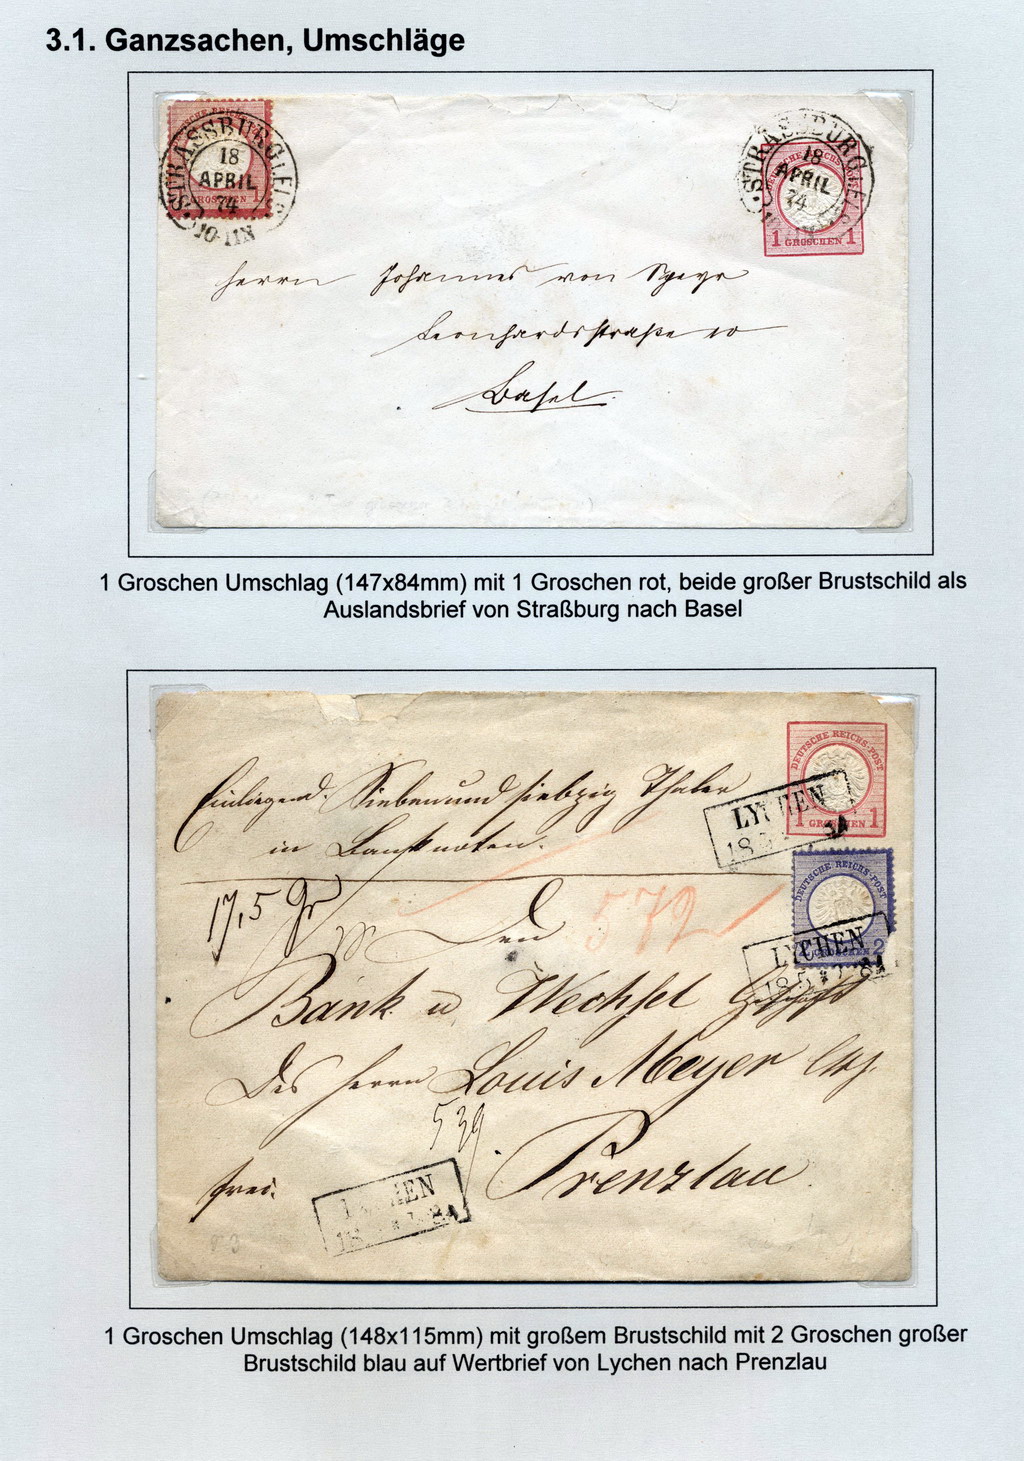 3.1. Ganzsachen, Umschläge
STRASSBURG I. ELS.
18
APRIL
74
GROSCHEN 1
STRASSBURG I. ELS.
18
APRIL
74
1 GROSCHEN 1
Herrn Johannes von Speyr
Leonhardsstraße 10
Basel.
1 Groschen Umschlag (147x84mm) mit 1 Groschen rot, beide großer Brustschild als
Auslandsbrief von Straßburg nach Basel
DEUTSCHE REICHS-POST
1 GROSCHEN 1
Einliegend: Sieben und siebzig Thaler
in Banknoten.
LYCHEN
DEUTSCHE REICHS-POST
17,5 Gr
572
Den
LYCHEN
Bank u Wechsel Geschäft
Des Herrn Louis Meyer
539
Prenzlau.
frei.
LYCHEN
1 Groschen Umschlag (148x115mm) mit großem Brustschild mit 2 Groschen großer
Brustschild blau auf Wertbrief von Lychen nach Prenzlau